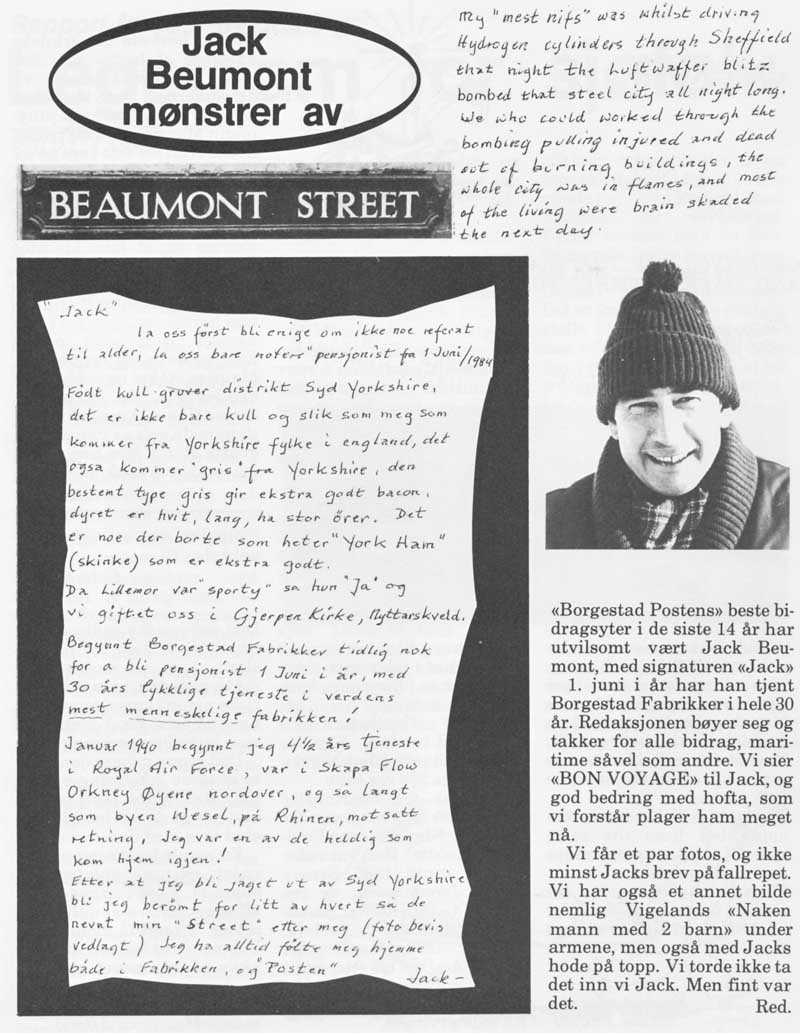 Jack
Beumont
mønstrer av
BEAUMONT STREET
My "mest nifs" was whilst driving
Hydrogen cylinders through Sheffield
that night the Luftwaffer blitz
bombed that steel city all night long.
We who could worked through the
bombing pulling injured and dead
out of burning buildings, the
whole city was in flames, and most
of the living were brain skaded
the next day.
"Jack"
La oss først bli enige om ikke noe referat
til alder, la oss bare notere "pensjonist fra 1 Juni/1984
Født kull-gruver distrikt Syd Yorkshire,
det er ikke bare kull og slik som meg som
kommer fra Yorkshire fylke i england, det
også kommer "gris" fra Yorkshire, den
bestemt type gris gir ekstra godt bacon,
dyret er hvit, lang, ha stor örer. Det
er noe der borte som heter "York Ham"
(skinke) som er ekstra godt.
Da Lillemor var "sporty" sa hun "Ja" og
vi giftet oss i Gjerpen Kirke, Nyttarskveld.
Begynnt Borgestad Fabrikker tidlig nok
for a bli pensjonist 1 Juni i år, med
30 års lykklige tjeneste i verdens
mest menneskelige fabrikken!
Januar 1940 begynnt jeg 4½ års tjeneste
i Royal Air Force, var i Skapa Flow
Orkney Øyene nordover, og så langt
som byen Wesel, på Rhinen, motsatt
retning, Jeg var en av de heldig som
kom hjem igjen!
Etter at jeg bli jaget ut av Syd Yorkshire
bli jeg berømt for litt av hvert så de
nevnt min "Street" etter meg (foto bevis
vedlagt) Jeg ha alltid følte meg hjemme
både i Fabrikken, og "Posten"
Jack-
«Borgestad Postens» beste bi-
dragsyter i de siste 14 år har
utvilsomt vært Jack Beu-
mont, med signaturen «Jack»
1. juni i år har han tjent
Borgestad Fabrikker i hele 30
år. Redaksjonen bøyer seg og
takker for alle bidrag, mari-
time såvel som andre. Vi sier
«BON VOYAGE» til Jack, og
god bedring med hofta, som
vi forstår plager ham meget
nå.
Vi får et par fotos, og ikke
minst Jacks brev på fallrepet.
Vi har også et annet bilde
nemlig Vigelands «Naken
mann med 2 barn» under
armene, men også med Jacks
hode på topp. Vi torde ikke ta
det inn vi Jack. Men fint var
det. Red.